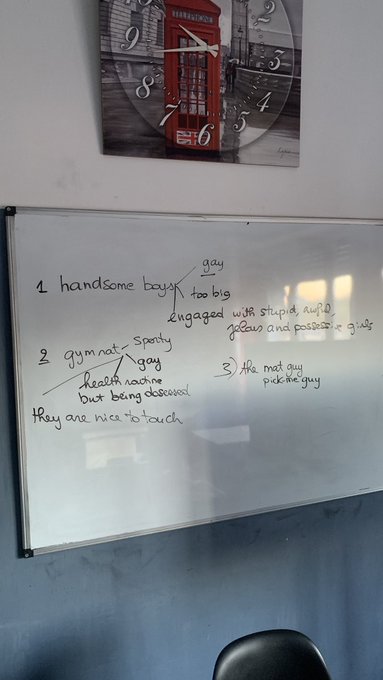 TELEPHONE
2
9
3
8
4
7
6
5
1 handsome boys
gay
too big
engaged with stupid, awful,
jelous and possessive girls
2 gym nat
sporty
gay
health routine
but being obsessed
they are nice to touch
3) the mat guy
pick-me guy